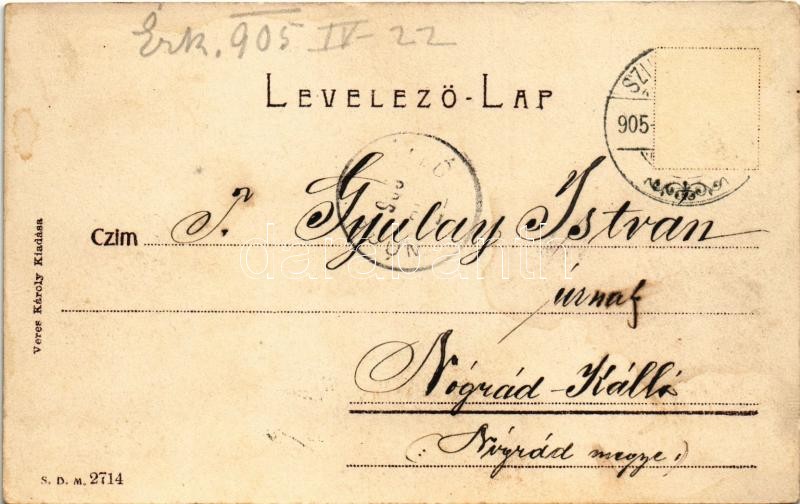 Érk. 905 IV-22
LEVELEZŐ-LAP
905-
Czim T. Gyulay István
úrnak
Nógrád-Kálló
(: Nógrád megye:)
Veres Károly Kiadása
S. D. M. 2714
darabanth